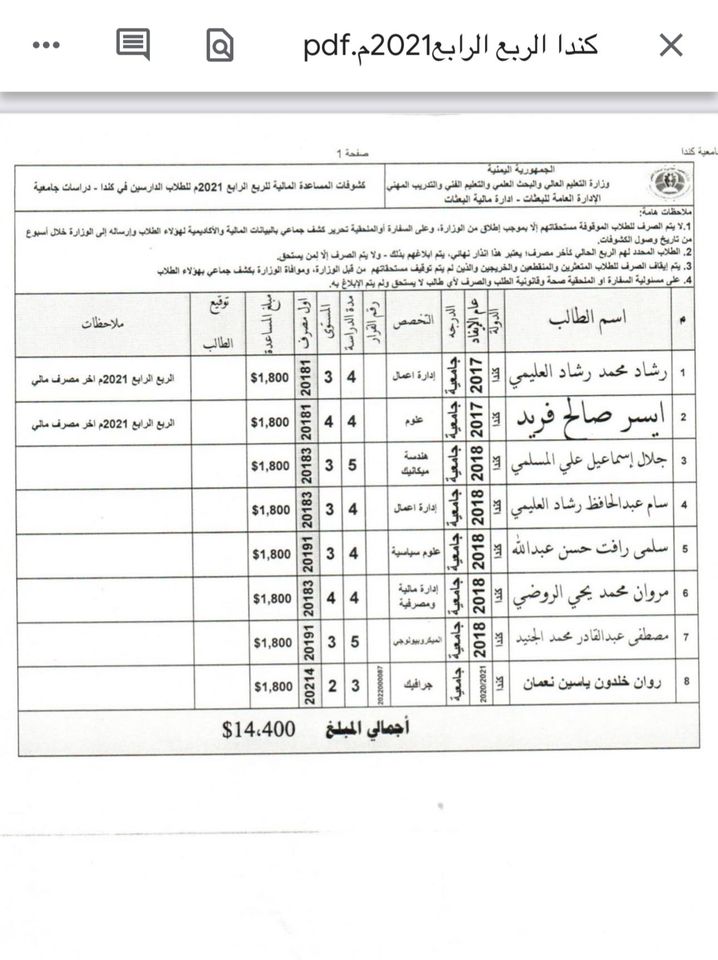 كندا الربع الرابع2021م.pdf
جامعية كندا
صفحة 1
الجمهورية اليمنية
وزارة التعليم العالي والبحث العلمي والتعليم الفني والتدريب المهني
الإدارة العامة للبعثات - ادارة مالية البعثات
كشوفات المساعدة المالية للربع الرابع 2021م للطلاب الدارسين في كندا - دراسات جامعية
ملاحظات هامة:
1. لا يتم الصرف للطلاب الموقوفة مستحقاتهم إلا بموجب إطلاق من الوزارة، وعلى السفارة أوالملحقية تحرير كشف جماعي بالبيانات المالية والأكاديمية لهؤلاء الطلاب وإرساله إلى الوزارة خلال أسبوع
من تاريخ وصول الكشوفات.
2. الطلاب المحدد لهم الربع الحالي كآخر مصرف؛ يعتبر هذا انذار نهائي، يتم ابلاغهم بذلك - ولا يتم الصرف إلا لمن يستحق.
3. يتم إيقاف الصرف للطلاب المتعثرين والمنقطعين والخريجين والذين لم يتم توقيف مستحقاتهم من قبل الوزارة، وموافاة الوزارة بكشف جماعي بهؤلاء الطلاب
4. على مسئولية السفارة او الملحقية صحة وقانونية الطلب والصرف لأي طالب لا يستحق ولم يتم الإبلاغ به.
م اسم الطالب الدولة عام الإيفاد الدرجه التخصص رقم القرار مدة الدراسة المستوى اول مصرف مبلغ المساعدة توقيع الطالب ملاحظات
1 رشاد محمد رشاد العليمي كندا 2017 جامعية إدارة اعمال 4 3 20181 $1,800 الربع الرابع 2021م اخر مصرف مالي
2 ايسر صالح فريد كندا 2017 جامعية علوم 4 4 20181 $1,800 الربع الرابع 2021م اخر مصرف مالي
3 جلال إسماعيل علي المسلمي كندا 2018 جامعية هندسة ميكانيك 5 3 20183 $1,800
4 سام عبدالحافظ رشاد العليمي كندا 2018 جامعية إدارة اعمال 4 3 20183 $1,800
5 سلمى رافت حسن عبدالله كندا 2018 جامعية علوم سياسية 4 3 20191 $1,800
6 مروان محمد يحي الروضي كندا 2018 جامعية إدارة مالية ومصرفية 4 4 20183 $1,800
7 مصطفى عبدالقادر محمد الجنيد كندا 2018 جامعية الميكروبيولوجي 5 3 20191 $1,800
8 روان خلدون ياسين نعمان كندا 2020/2021 جامعية جرافيك 2022000087 3 2 20214 $1,800
أجمالي المبلغ $14،400